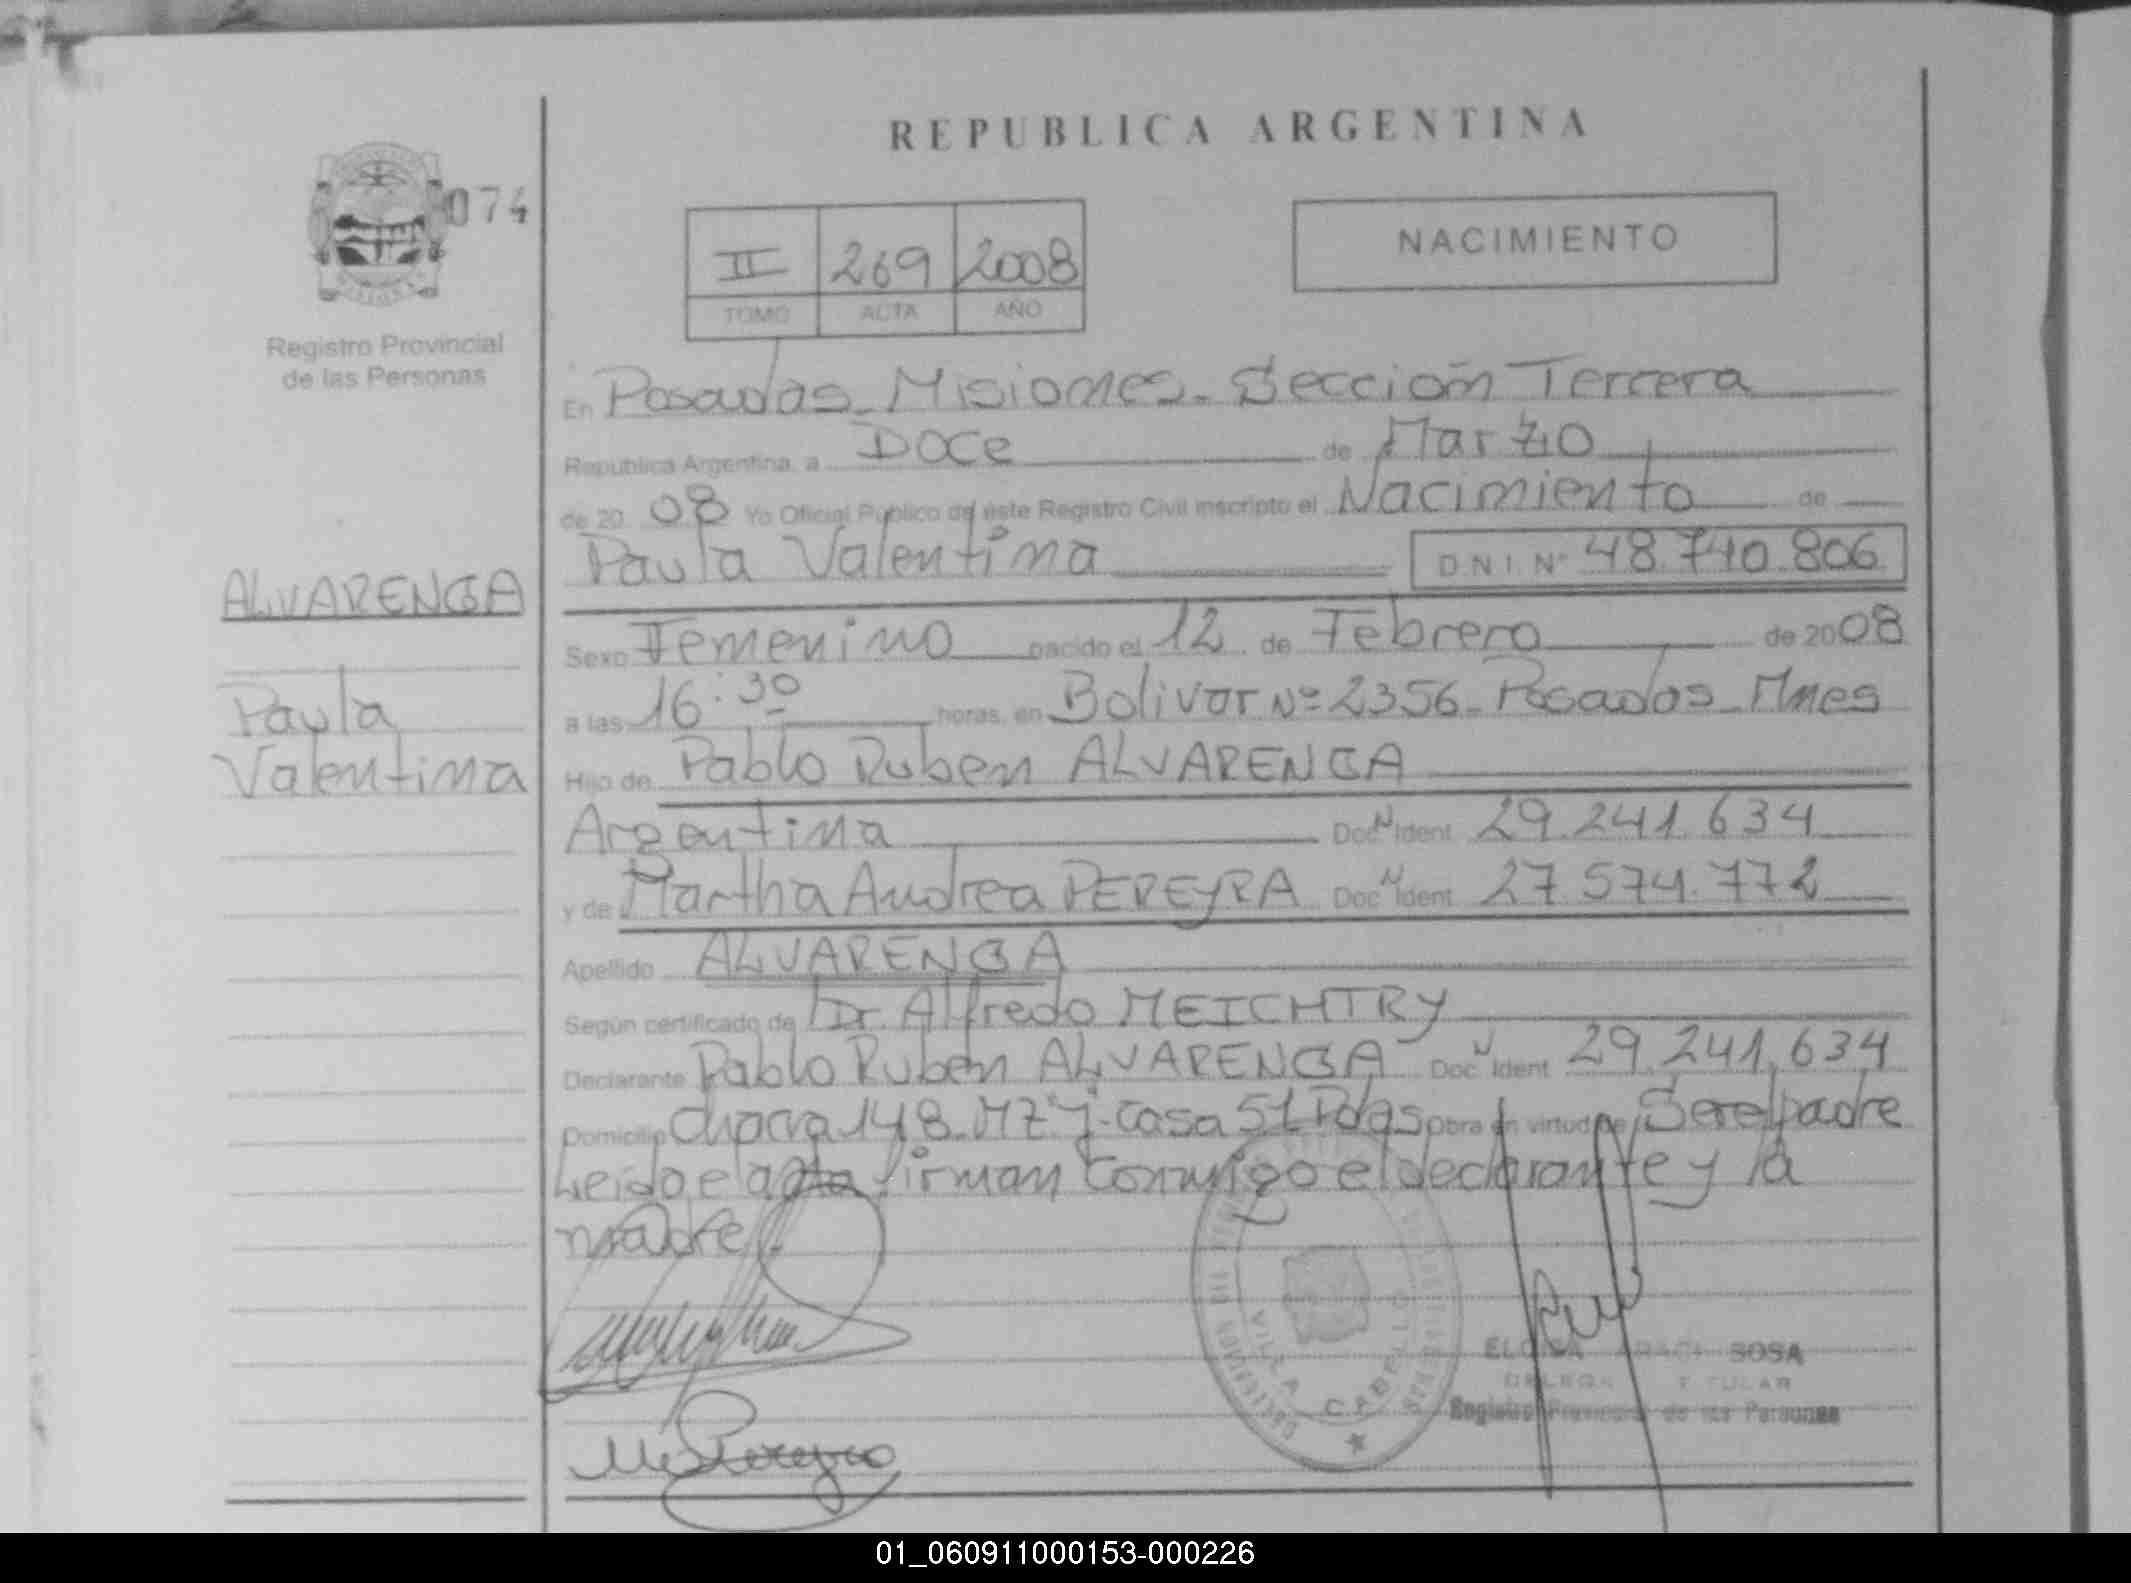 REPUBLICA ARGENTINA
074
II 269 2008
TOMO ACTA AÑO
NACIMIENTO
Registro Provincial
de las Personas
En Posadas - Misiones - Sección Tercera
Republica Argentina, a Doce de Marzo
de 20 08 Yo Oficial Público de este Registro Civil inscripto el Nacimiento de
Paula Valentina D.N.I. Nº 48.740.806
ALVARENGA
Paula
Valentina
Sexo Femenino nacido el 12 de Febrero de 2008
a las 16:30 horas, en Bolivar Nº 2356 - Posadas - Mnes
Hijo de Pablo Ruben ALVARENGA
Argentina Doc N Ident 29.241.634
y de Martha Andrea PEREYRA Doc N Ident 27.574.772
Apellido ALVARENGA
Según certificado de Dr. Alfredo MEICHTRY
Declarante Pablo Ruben ALVARENGA Doc N Ident 29.241.634
Domicilio Chacra 148 - MZ "j" - Casa 51 Pdas Obra en virtud de Ser el padre
Leido el acta firman conmigo el declarante y la
madre
VILLA CABELLO
SOSA
TITULAR
Registro Provincial de las Personas
01_060911000153-000226